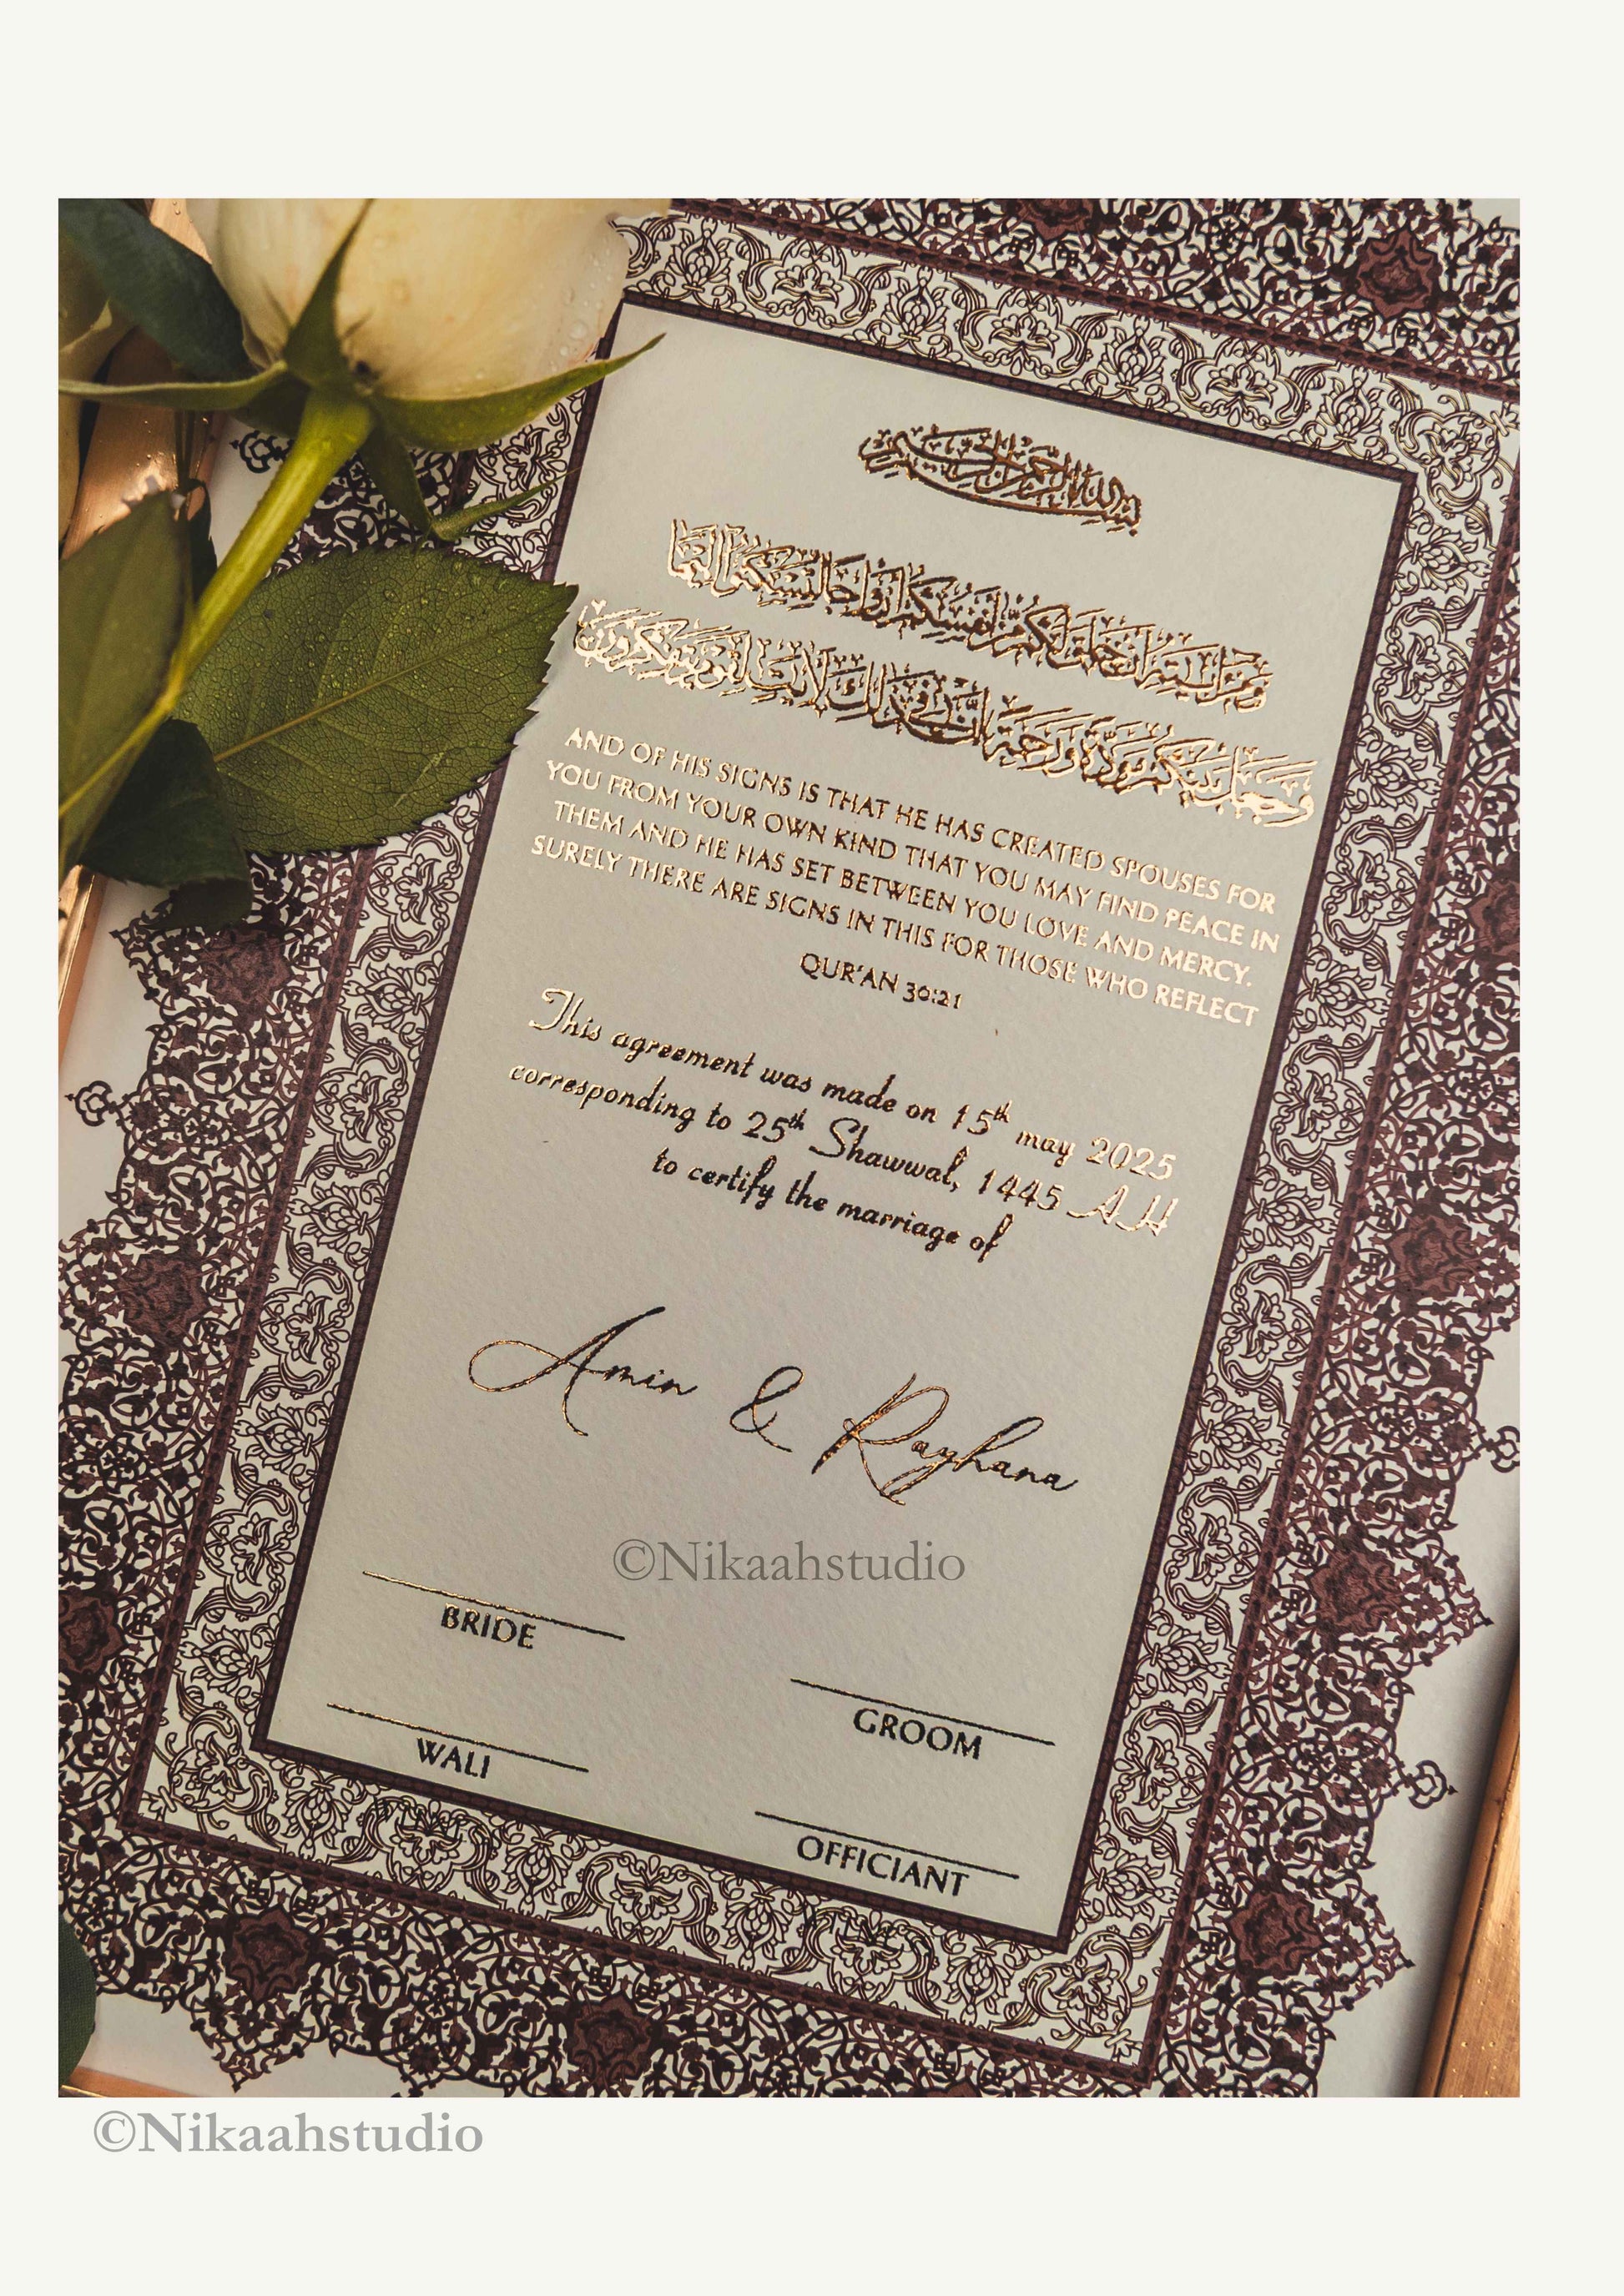 بسم الله الرحمن الرحيم
ومن آيته أن خلق لكم من أنفسكم أزواجا لتسكنوا إليها
وجعل بينكم مودة ورحمة إن في ذلك لآيت لقوم يتفكرون
AND OF HIS SIGNS IS THAT HE HAS CREATED SPOUSES FOR
YOU FROM YOUR OWN KIND THAT YOU MAY FIND PEACE IN
THEM AND HE HAS SET BETWEEN YOU LOVE AND MERCY.
SURELY THERE ARE SIGNS IN THIS FOR THOSE WHO REFLECT
QUR'AN 30:21
This agreement was made on 15th may 2025
corresponding to 25th Shawwal, 1445 AH
to certify the marriage of
Amin & Rayhana
©Nikaahstudio
BRIDE
GROOM
WALI
OFFICIANT
©Nikaahstudio